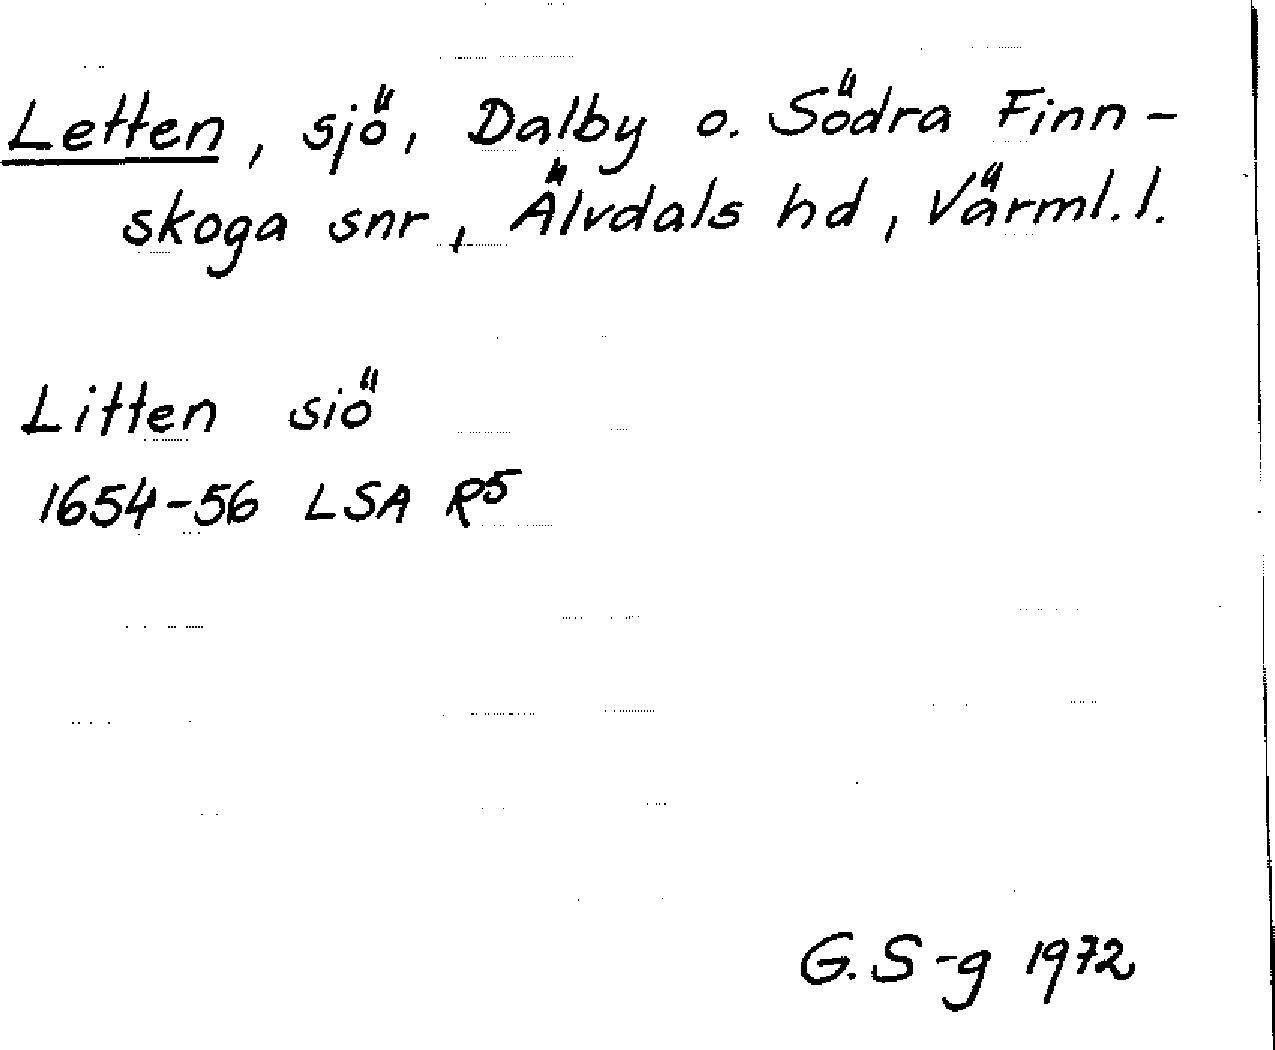 Letten, sjö, Dalby o. Södra Finn-
skoga snr, Älvdals hd, Värml. l.
Litten siö
1654-56 LSA R5
G. S-g 1972